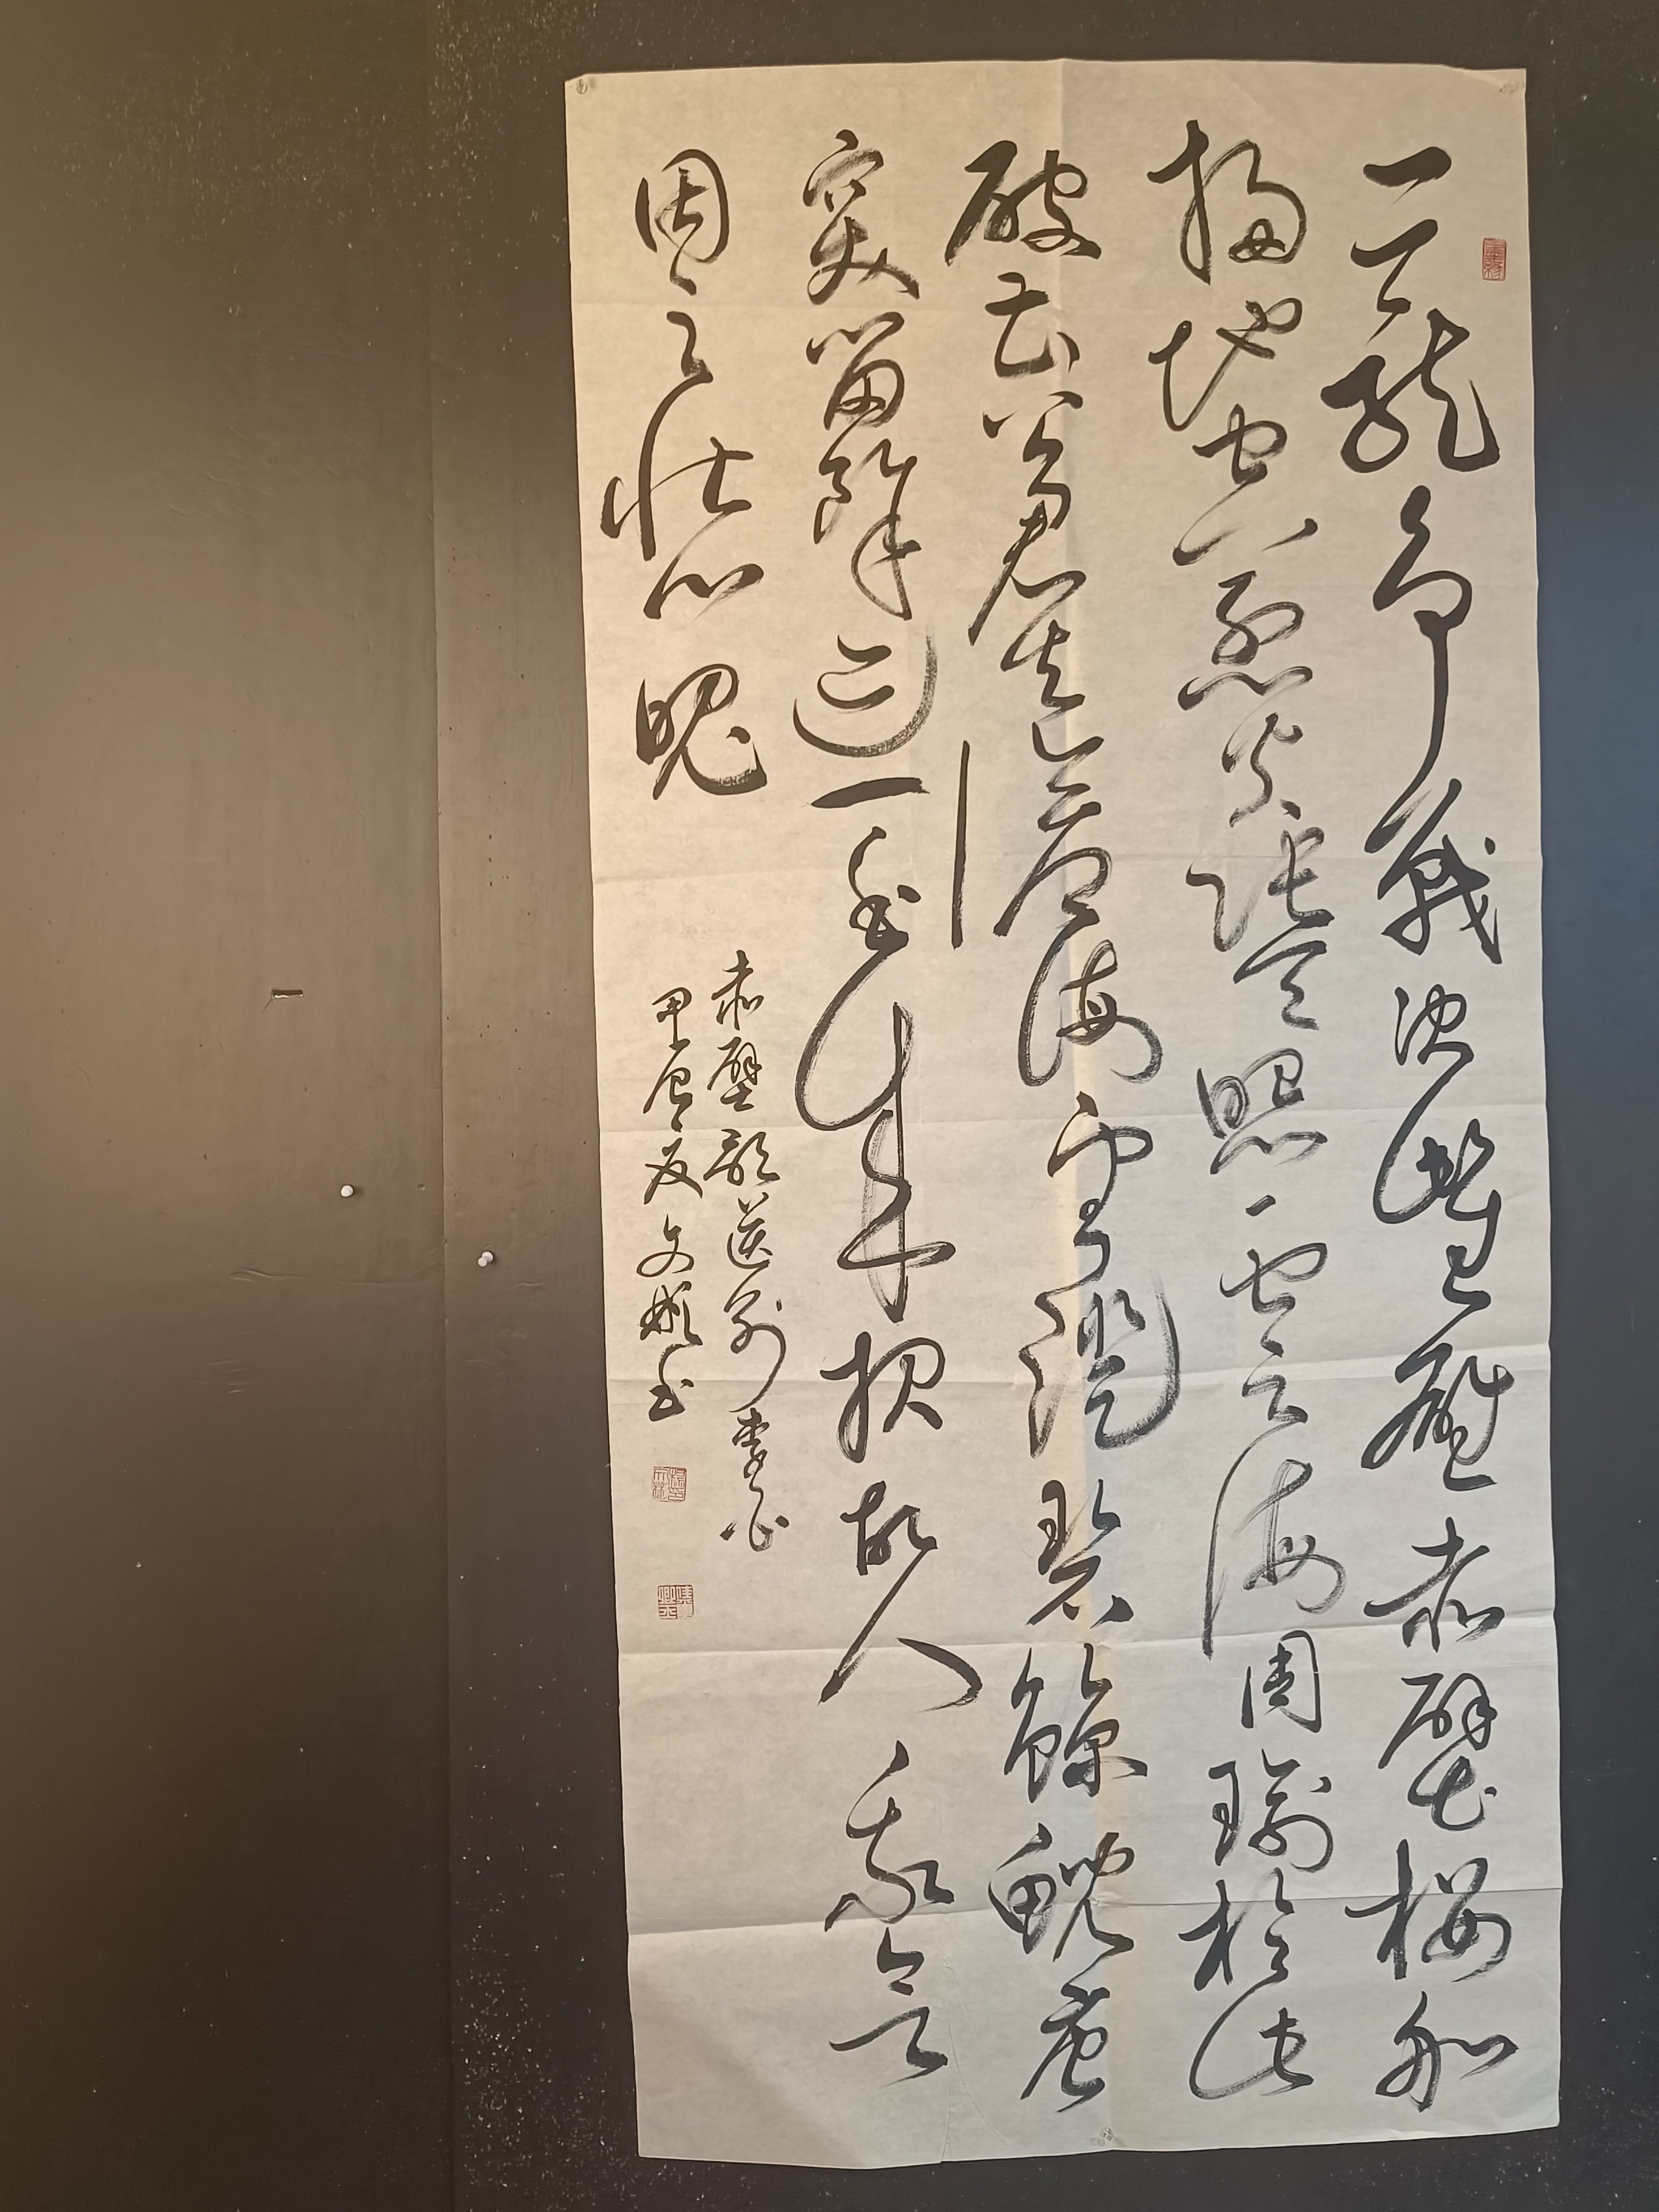 二龍争戰決雌雄赤壁樓船
掃地空烈火張天照雲海周瑜於此
破曹公君去滄海望澄碧鯨鯢唐
突留餘迹一一書來報故人我欲
因之壯心魄
赤壁歌送别李白
甲辰夏文彬书